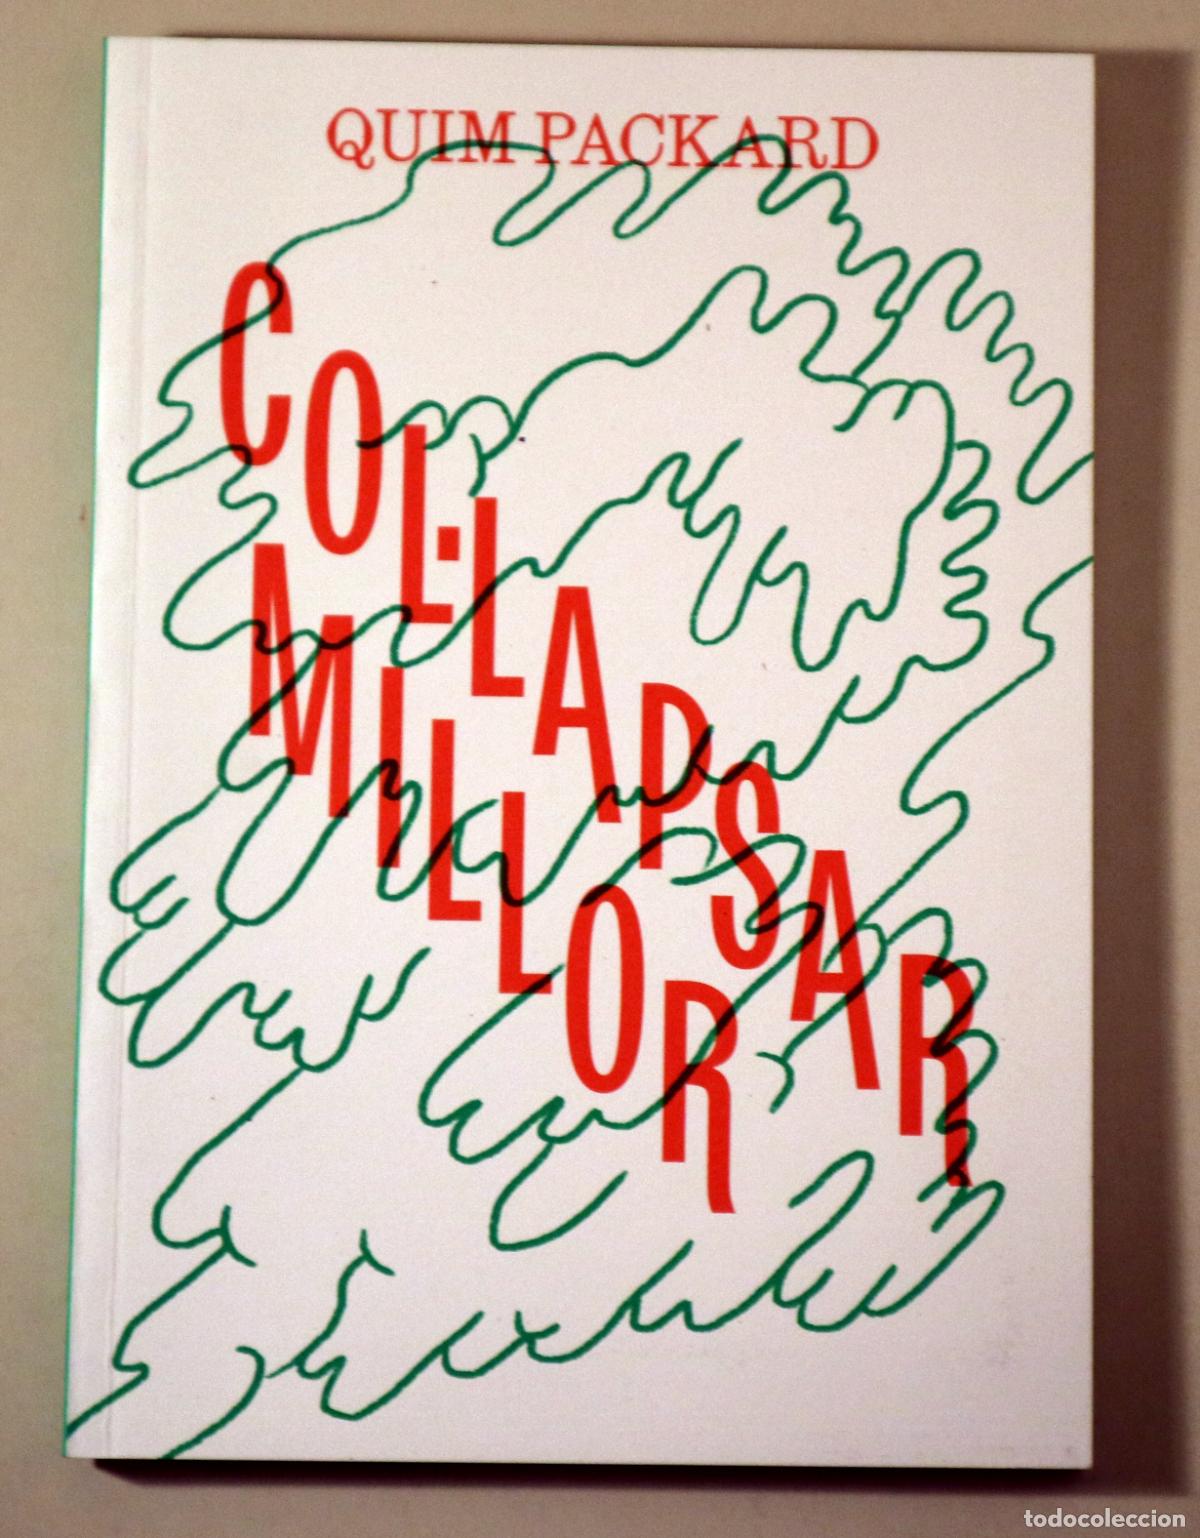 QUIM PACKARD
COL·LAPSAR
MILLOR
todocoleccion